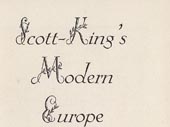 Scott-King's
Modern
Europe